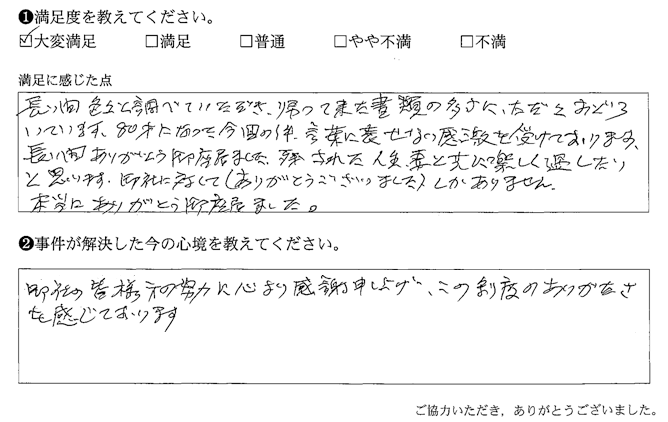 ❶満足度を教えてください。
☑大変満足 □満足 □普通 □やや不満 □不満
満足に感じた点
長い間色々と調べていただき、帰って来た書類の多さに、ただとおどろ
いています。80才になった今回の件、言葉に表せない感激を受けております。
長い間ありがとう御座居ました。残された人生妻と共に楽しく過したい
と思います。御社に対して(ありがとうございました)しかありません。
本当にありがとう御座居ました。
❷事件が解決した今の心境を教えてください。
御社の皆様方の努力に心より感謝申し上げ、この制度のありがたさ
を感じております
ご協力いただき、ありがとうございました。